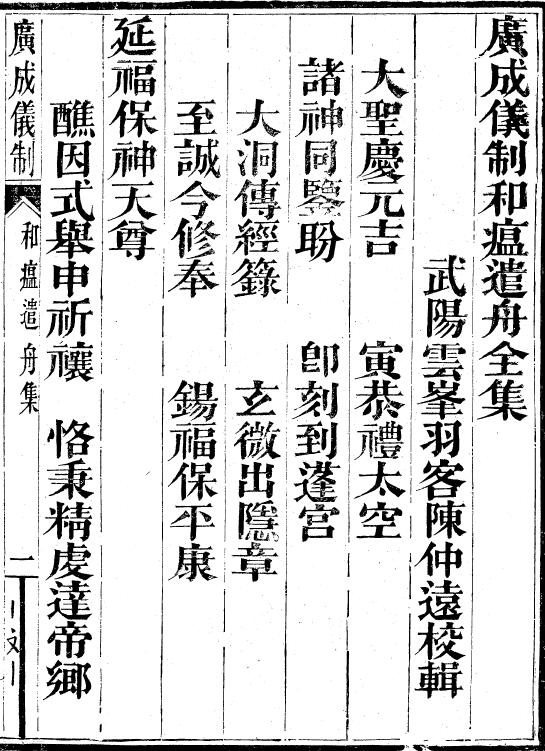 廣成儀制和瘟遣舟全集
武陽雲峯羽客陳仲遠校輯
大聖慶元吉　寅恭禮太空
諸神同鑒盼　卽刻到蓬宮
大洞傳經籙　玄微出隱章
至誠今修奉　錫福保平康
延福保神天尊
醮因式舉申祈禳　恪秉精虔達帝鄉
廣成儀制　和瘟遣舟集　二